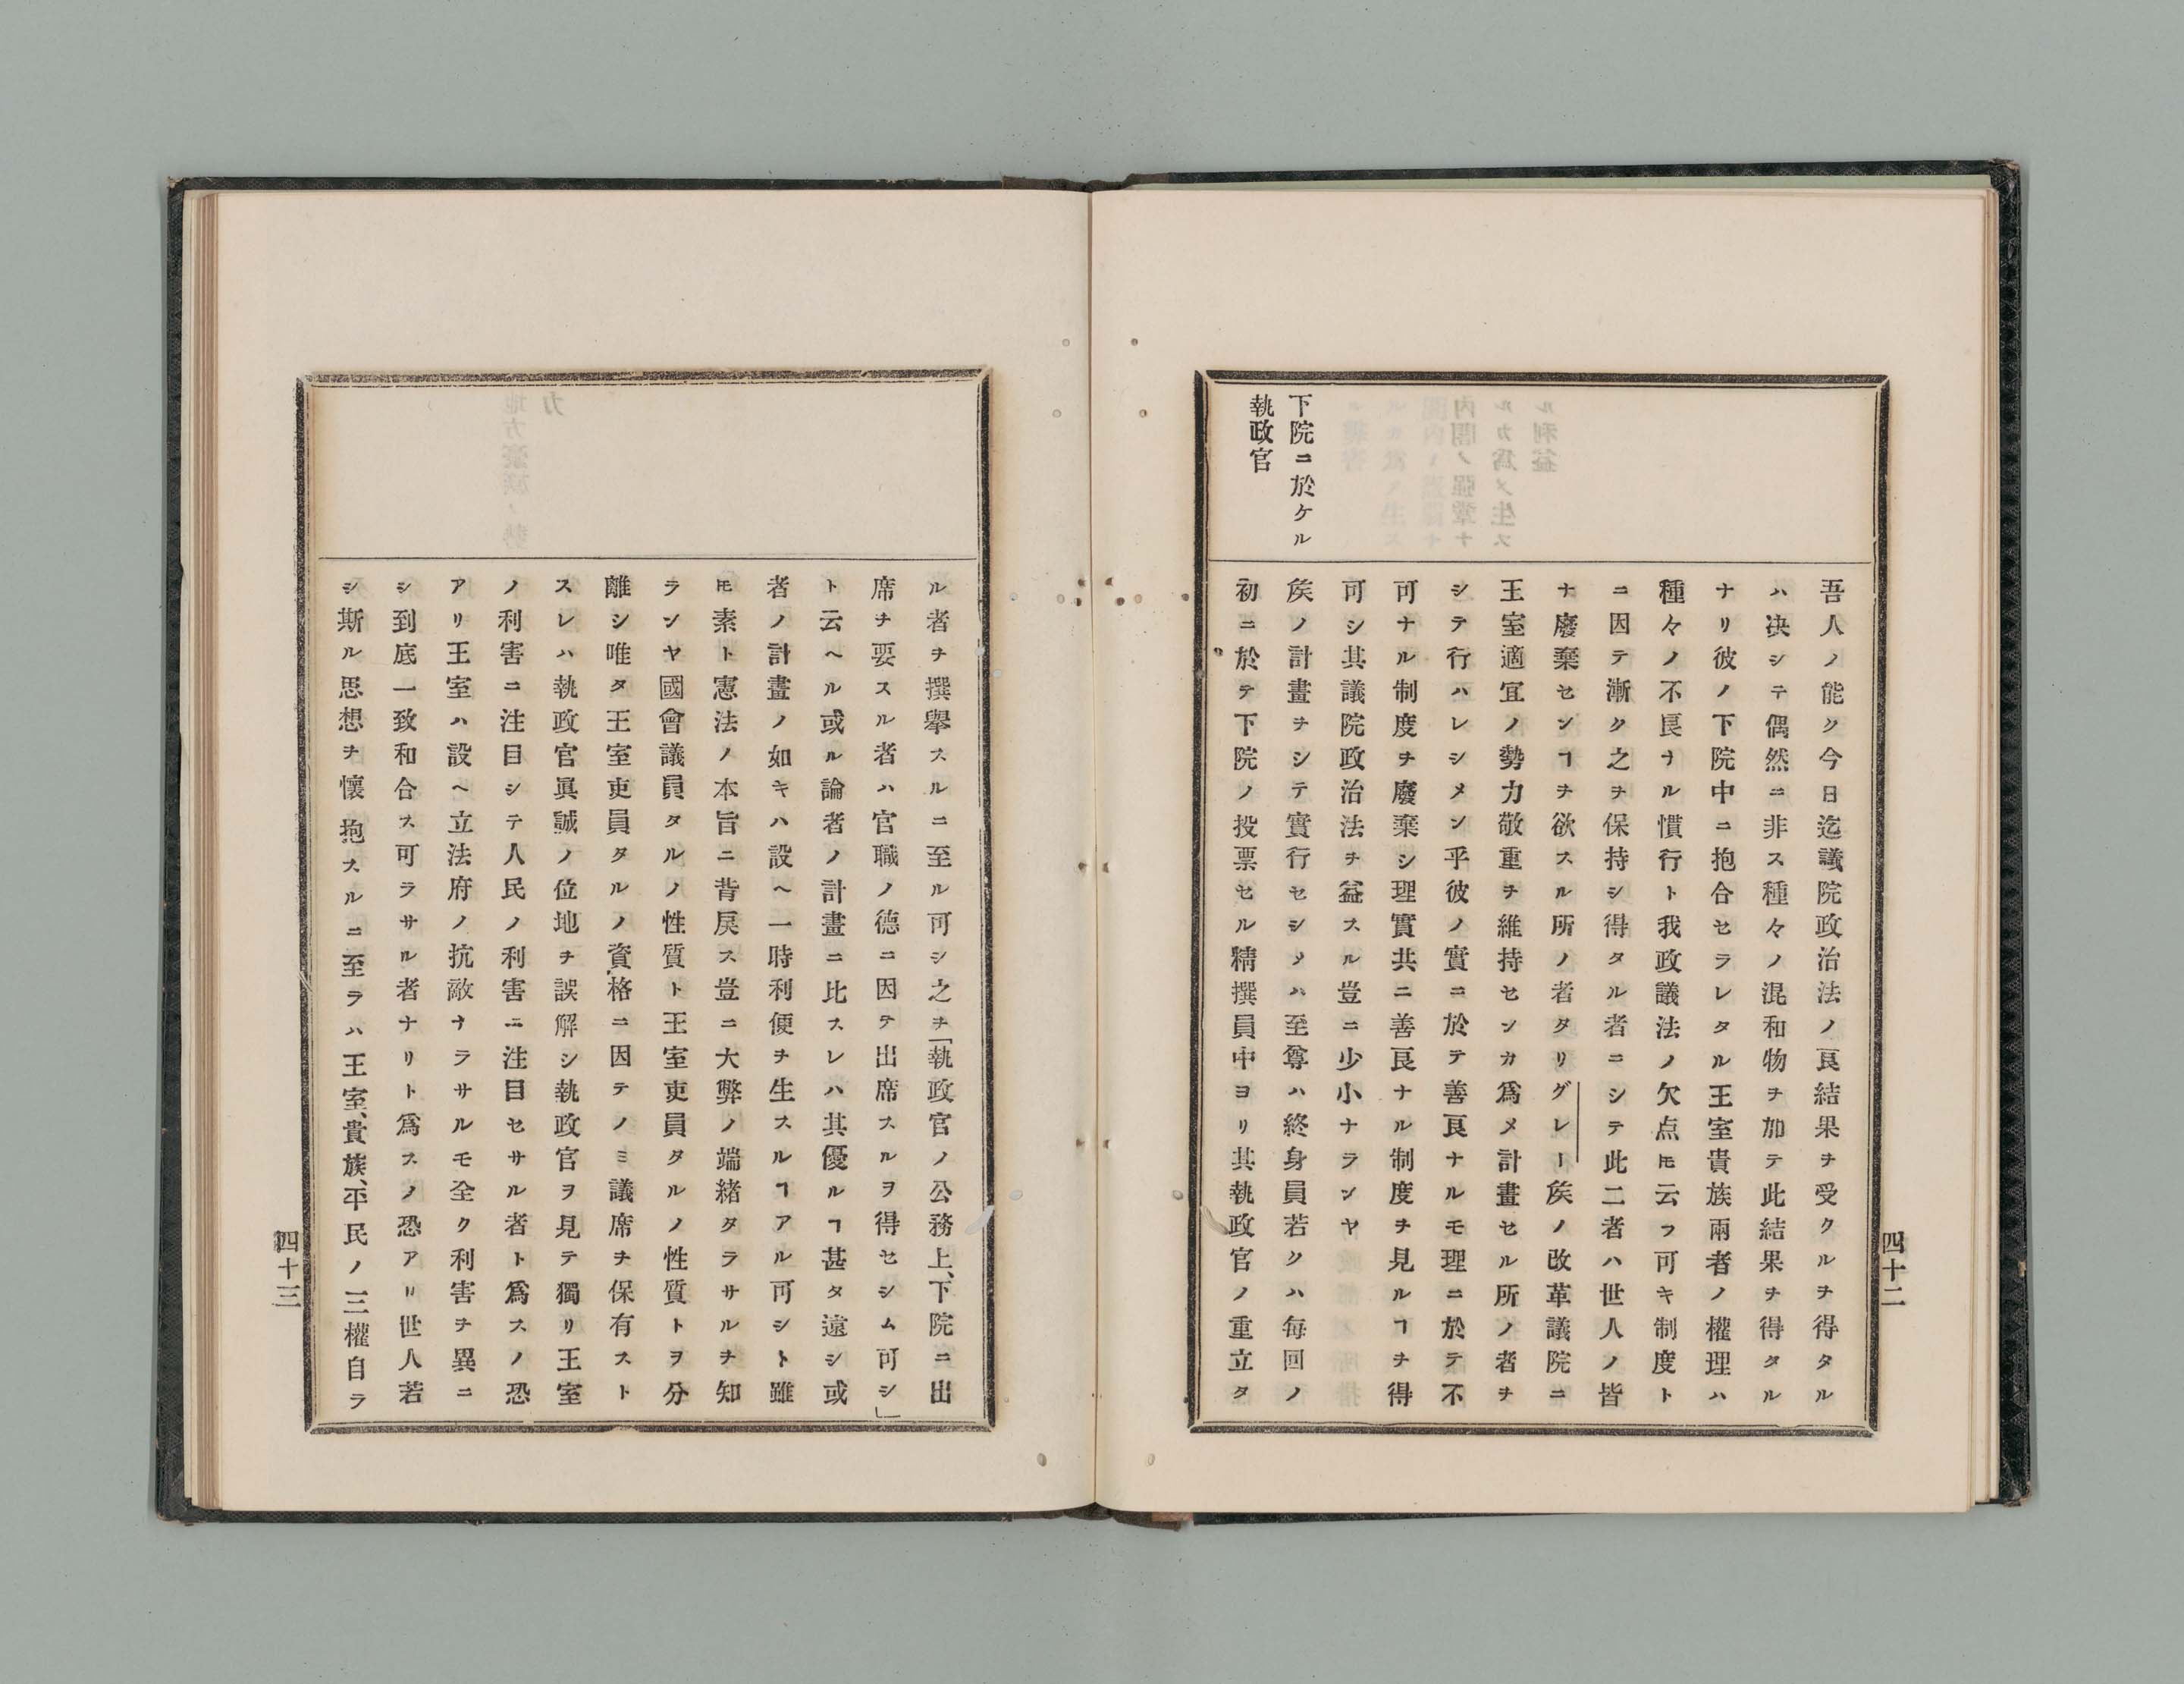 下院ニ於ケル
執政官
吾人ノ能ク今日迄議院政治法ノ良結果ヲ受クルヲ得タル
ハ决シテ偶然ニ非ス種々ノ混和物ヲ加テ此結果ヲ得タル
ナリ彼ノ下院中ニ抱合セラレタル王室貴族兩者ノ權理ハ
種々ノ不良ナル慣行ト我政議法ノ欠点𪜈云フ可キ制度ト
ニ因テ漸ク之ヲ保持シ得タル者ニシテ此二者ハ世人ノ皆
ナ廢棄センヿヲ欲スル所ノ者タリグレー侯ノ改革議院ニ
王室適宜ノ勢力敬重ヲ維持センカ爲メ計畫セル所ノ者ヲ
シテ行ハレシメン乎彼ノ實ニ於テ善良ナルモ理ニ於テ不
可ナル制度ヲ廢棄シ理實共ニ善良ナル制度ヲ見ルヿヲ得
可シ其議院政治法ヲ益スル豈ニ少小ナランヤ
侯ノ計畫ヲシテ實行セシメハ至尊ハ終身員若クハ每回ノ
初ニ於テ下院ノ投票セル精撰員中ヨリ其執政官ノ重立タ
四十二
ル者ヲ撰擧スルニ至ル可シ之ヲ「執政官ノ公務上、下院ニ出
席ヲ要スル者ハ官職ノ德ニ因テ出席スルヲ得セシム可シ」
ト云ヘル或ル論者ノ計畫ニ比スレハ其優ルヿ甚タ遠シ或
者ノ計畫ノ如キハ設ヘ一時利便ヲ生スルヿアル可シト雖
𪜈素ト憲法ノ本旨ニ背戻ス豈ニ大弊ノ端緒タラサルヲ知
ランヤ國會議員タルノ性質ト王室吏員タルノ性質トヲ分
離シ唯タ王室吏員タルノ資格ニ因テノミ議席ヲ保有スト
スレハ執政官眞誠ノ位地ヲ誤解シ執政官ヲ見テ獨リ王室
ノ利害ニ注目シテ人民ノ利害ニ注目セサル者ト爲スノ恐
アリ王室ハ設ヘ立法府ノ抗敵ナラサルモ全ク利害ヲ異ニ
シ到底一致和合ス可ラサル者ナリト爲スノ恐アリ世人若
シ斯ル思想ヲ懷抱スルニ至ラハ王室、貴族、平民ノ三權自ラ
四十三